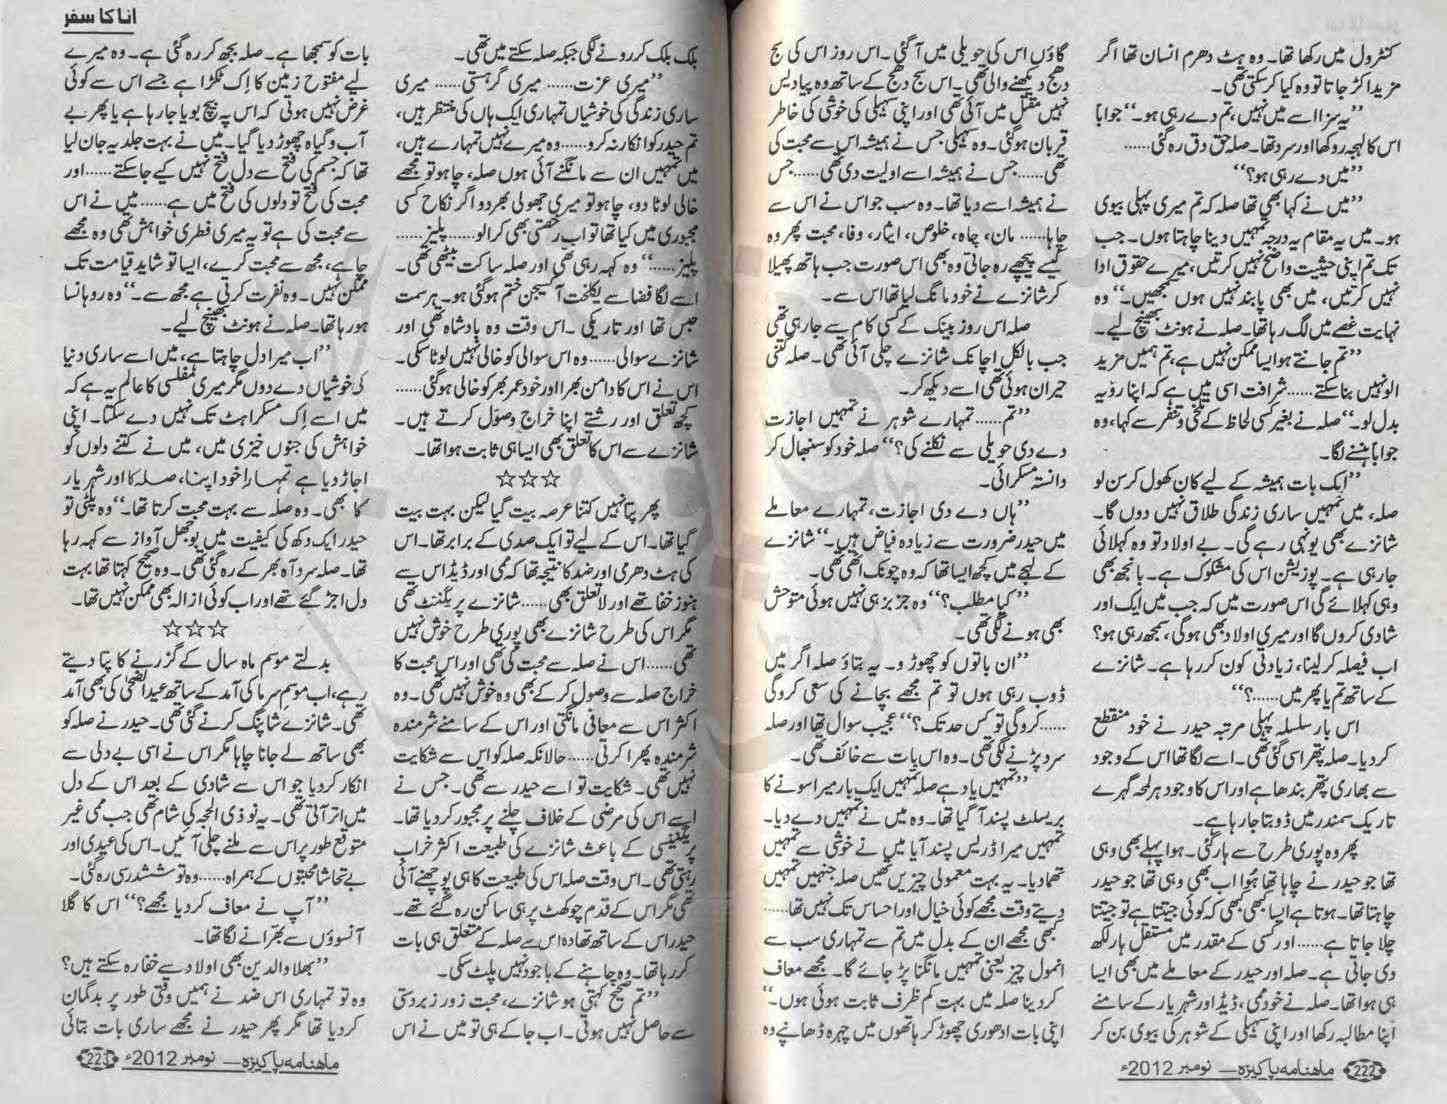 کنٹرول میں رکھا تھا۔ وہ ہٹ دھرم انسان تھا اگر
مزید اکڑ جاتا تو وہ کیا کر سکتی تھی۔
”یہ سزا اسے میں نہیں، تم دے رہی ہو۔“ جواباً
اس کا لہجہ روکھا اور سرد تھا۔ صلہ حق دق رہ گئی......
”میں دے رہی ہو؟“
”میں نے کہا بھی تھا صلہ کہ تم میری پہلی بیوی
ہو۔ میں یہ مقام یہ درجہ تمہیں دینا چاہتا ہوں۔ جب
تک تم اپنی حیثیت واضح نہیں کرتیں، میرے حقوق ادا
نہیں کرتیں، میں بھی پابند نہیں ہوں سمجھیں۔“ وہ
نہایت غصے میں لگ رہا تھا۔ صلہ نے ہونٹ بھینچ لیے۔
”تم جانتے ہو ایسا ممکن نہیں ہے، تم ہمیں مزید
الو نہیں بنا سکتے...... شرافت اسی میں ہے کہ اپنا رویہ
بدل لو۔“ صلہ نے بغیر کسی لحاظ کے تلخی و تنفر سے کہا، وہ
جواباً ہنسنے لگا۔
”ایک بات ہمیشہ کے لیے کان کھول کر سن لو
صلہ، میں تمہیں ساری زندگی طلاق نہیں دوں گا۔
شانزے بھی یونہی رہے گی۔ بے اولاد تو وہ کہلائی
جا رہی ہے۔ پوزیشن اس کی مشکوک ہے۔ بانجھ بھی
وہی کہلائے گی اس صورت میں کہ جب میں ایک اور
شادی کروں گا اور میری اولاد بھی ہو گی، سمجھ رہی ہو؟
اب فیصلہ کر لینا، زیادتی کون کر رہا ہے۔ شانزے
کے ساتھ تم یا پھر میں......؟“
اس بار سلسلہ پہلی مرتبہ حیدر نے خود منقطع
کر دیا۔ صلہ پتھر اسی گئی تھی۔ اسے لگا تھا اس کے وجود
سے بھاری پتھر بندھا ہے اور اس کا وجود ہر لمحہ گہرے
تاریک سمندر میں ڈوبتا جا رہا ہے۔
پھر وہ پوری طرح سے ہار گئی۔ ہوا پہلے بھی وہی
تھا جو حیدر نے چاہا تھا ہُوا اب بھی وہی تھا جو حیدر
چاہتا تھا۔ ہوتا ہے ایسا کبھی کبھی کہ کوئی جیتتا ہے تو جیتتا
چلا جاتا ہے...... اور کسی کے مقدر میں مستقل ہار لکھ
دی جاتی ہے۔ صلہ اور حیدر کے معاملے میں بھی ایسا
ہی ہوا تھا۔ صلہ نے خود ممی، ڈیڈ اور شہریار کے سامنے
اپنا مطالبہ رکھا اور اپنی سہیلی کے شوہر کی بیوی بن کر
222 ماهنامه پاکیزه— نومبر 2012ء
گاؤں اس کی حویلی میں آ گئی۔ اس روز اس کی سج
دھج دیکھنے والی تھی۔ اس سج دھج کے ساتھ وہ پیا دیس
نہیں مقتل میں آئی تھی اور اپنی سہیلی کی خوشی کی خاطر
قربان ہو گئی۔ وہ سہیلی جس نے ہمیشہ اس سے محبت کی
تھی...... جس نے ہمیشہ اسے اولیت دی تھی...... جس
نے ہمیشہ اسے دیا تھا۔ وہ سب جو اس نے اس سے
چاہا...... مان، چاہ، خلوص، ایثار، وفا، محبت پھر وہ
کیسے پیچھے رہ جاتی وہ بھی اس صورت جب ہاتھ پھیلا
کر شانزے نے خود مانگ لیا تھا اس سے۔
صلہ اس روز بینک کے کسی کام سے جا رہی تھی
جب بالکل اچانک شانزے چلی آئی تھی۔ صلہ کتنی
حیران ہوئی تھی اسے دیکھ کر۔
”تم...... تمہارے شوہر نے تمہیں اجازت
دے دی حویلی سے نکلنے کی؟“ صلہ خود کو سنبھال کر
دانستہ مسکرائی۔
”ہاں دے دی اجازت، تمہارے معاملے
میں حیدر ضرورت سے زیادہ فیاض ہیں۔“ شانزے
کے لہجے میں کچھ ایسا تھا کہ وہ چونک اٹھی تھی۔
”کیا مطلب؟“ وہ جز بز ہی نہیں ہوئی متوحش
بھی ہونے لگی تھی۔
”ان باتوں کو چھوڑو۔ یہ بتاؤ صلہ اگر میں
ڈوب رہی ہوں تو تم مجھے بچانے کی سعی کرو گی
...... کرو گی تو کس حد تک؟“ عجیب سوال تھا اور صلہ
سرد پڑنے لگی تھی۔ وہ اس بات سے خائف تھی۔
”تمہیں یاد ہے صلہ تمہیں ایک بار میرا سونے کا
بریسلٹ پسند آ گیا تھا۔ وہ میں نے تمہیں دے دیا۔
تمہیں میرا ڈریس پسند آیا میں نے خوشی سے تمہیں
تھما دیا۔ یہ بہت معمولی چیزیں تھیں صلہ جنہیں تمہیں
دیتے وقت مجھے کوئی خیال اور احساس تک نہیں تھا......
کبھی مجھے ان کے بدل میں تم سے تمہاری سب سے
انمول چیز یعنی تمہیں مانگنا پڑ جائے گا۔ مجھے معاف
کر دینا صلہ میں بہت کم ظرف ثابت ہوئی ہوں۔“
اپنی بات ادھوری چھوڑ کر ہاتھوں میں چہرہ ڈھانپے وہ
انا کا سفر
بلک بلک کر رونے لگی جبکہ صلہ سکتے میں تھی۔
”میری عزت...... میری گرہستی...... میری
ساری زندگی کی خوشیاں تمہاری ایک ہاں کی منتظر ہیں،
تم حیدر کو انکار نہ کرو...... وہ میرے نہیں تمہارے ہیں،
میں تمہیں ان سے مانگنے آئی ہوں صلہ، چاہو تو مجھے
خالی لوٹا دو، چاہو تو میری جھولی بھر دو اگر نکاح کسی
مجبوری میں کیا تھا تو اب رخصتی بھی کرا لو...... پلیز......
پلیز......“ وہ کہہ رہی تھی اور صلہ ساکت بیٹھی تھی۔
اسے لگا فضا سے یکلخت آکسیجن ختم ہو گئی ہو۔ ہر سمت
حبس تھا اور تاریکی۔ اس وقت وہ بادشاہ تھی اور
شانزے سوالی...... وہ اس سوالی کو خالی نہیں لوٹا سکی۔
اس نے اس کا دامن بھرا اور خود عمر بھر کو خالی ہو گئی......
کچھ تعلق اور رشتے اپنا خراج وصول کرتے ہیں۔
شانزے سے اس کا تعلق بھی ایسا ہی ثابت ہوا تھا۔
☆☆☆
پھر پتا نہیں کتنا عرصہ بیت گیا لیکن بہت بیت
گیا تھا۔ اس کے لیے تو ایک صدی کے برابر تھا۔ اس
کی ہٹ دھرمی اور ضد کا نتیجہ تھا کہ ممی اور ڈیڈ اس سے
ہنوز خفا تھے اور لا تعلق بھی...... شانزے پریگننٹ تھی
مگر اس کی طرح شانزے بھی پوری طرح خوش نہیں
تھی...... اس نے صلہ سے محبت کی تھی اور اس محبت کا
خراج صلہ سے وصول کر کے بھی وہ خوش نہیں تھی۔ وہ
اکثر اس سے معافی مانگتی اور اس کے سامنے شرمندہ
شرمندہ پھرا کرتی...... حالانکہ صلہ کو اس سے شکایت
نہیں تھی۔ شکایت تو اسے حیدر سے تھی۔ جس نے
اسے اس کی مرضی کے خلاف چلنے پر مجبور کر دیا تھا۔
پریگننسی کے باعث شانزے کی طبیعت اکثر خراب
رہتی تھی۔ اس وقت صلہ اس کی طبیعت کا ہی پوچھنے آئی
تھی مگر اس کے قدم چوکھٹ پر ہی ساکن رہ گئے تھے۔
حیدر اس کے ساتھ تھا وہ اس سے صلہ کے متعلق ہی بات
کر رہا تھا۔ وہ چاہنے کے باوجود نہیں پلٹ سکی۔
”تم صحیح کہتی ہو شانزے، محبت زور زبردستی
سے حاصل نہیں ہوتی۔ اب جا کے ہی تو میں نے اس
بات کو سمجھا ہے۔ صلہ بجھ کر رہ گئی ہے۔ وہ میرے
لیے مفتوح زمین کا اِک ٹکڑا ہے جسے اس سے کوئی
غرض نہیں ہوتی کہ اس پہ بیج بویا جا رہا ہے یا پھر بے
آب و گیاہ چھوڑ دیا گیا۔ میں نے بہت جلد یہ جان لیا
تھا کہ جسم کی فتح سے دل فتح نہیں کیے جا سکتے...... اور
محبت کی فتح تو دلوں کی فتح میں ہے...... میں نے اس
سے محبت کی ہے تو یہ میری فطری خواہش تھی وہ مجھے
چاہے، مجھ سے محبت کرے، ایسا تو شاید قیامت تک
ممکن نہیں۔ وہ نفرت کرتی ہے مجھ سے۔“ وہ روہانسا
ہو رہا تھا۔ صلہ نے ہونٹ بھینچ لیے۔
”اب میرا دل چاہتا ہے، میں اسے ساری دنیا
کی خوشیاں دے دوں مگر میری مفلسی کا عالم یہ ہے کہ
میں اسے اِک مسکراہٹ تک نہیں دے سکتا۔ اپنی
خواہش کی جنوں خیزی میں، میں نے کتنے دلوں کو
اجاڑ دیا ہے تمہارا خود اپنا، صلہ کا اور شہریار
کا بھی۔ وہ صلہ سے بہت محبت کرتا تھا۔“ وہ پلٹی تو
حیدر ایک دکھ کی کیفیت میں بوجھل آواز سے کہہ رہا
تھا۔ صلہ سرد آہ بھر کے رہ گئی تھی۔ وہ صحیح کہتا تھا بہت
دل اجڑ گئے تھے اور اب کوئی ازالہ بھی ممکن نہیں تھا۔
☆☆☆
بدلتے موسم ماہ سال کے گزرنے کا پتا دیتے
رہے، اب موسمِ سرما کی آمد کے ساتھ عیدالضحیٰ کی بھی آمد
تھی۔ شانزے شاپنگ کرنے گئی تھی۔ حیدر نے صلہ کو
بھی ساتھ لے جانا چاہا مگر اس نے اسی بے دلی سے
انکار کر دیا جو اس سے شادی کے بعد اس کے دل
میں اتر آئی تھی۔ یہ نو ذی الحجہ کی شام تھی جب ممی غیر
متوقع طور پر اس سے ملنے چلی آئیں۔ اس کی عیدی اور
بے تحاشا محبتوں کے ہمراہ...... وہ تو ششدر سی رہ گئی۔
”آپ نے معاف کر دیا مجھے؟“ اس کا گلا
آنسوؤں سے بھرانے لگا تھا۔
”بھلا والدین بھی اولاد سے خفا رہ سکتے ہیں؟
وہ تو تمہاری اس ضد نے ہمیں وقتی طور پر بدگمان
کر دیا تھا مگر پھر حیدر نے مجھے ساری بات بتائی
ماهنامه پاکیزه— نومبر 2012ء 223